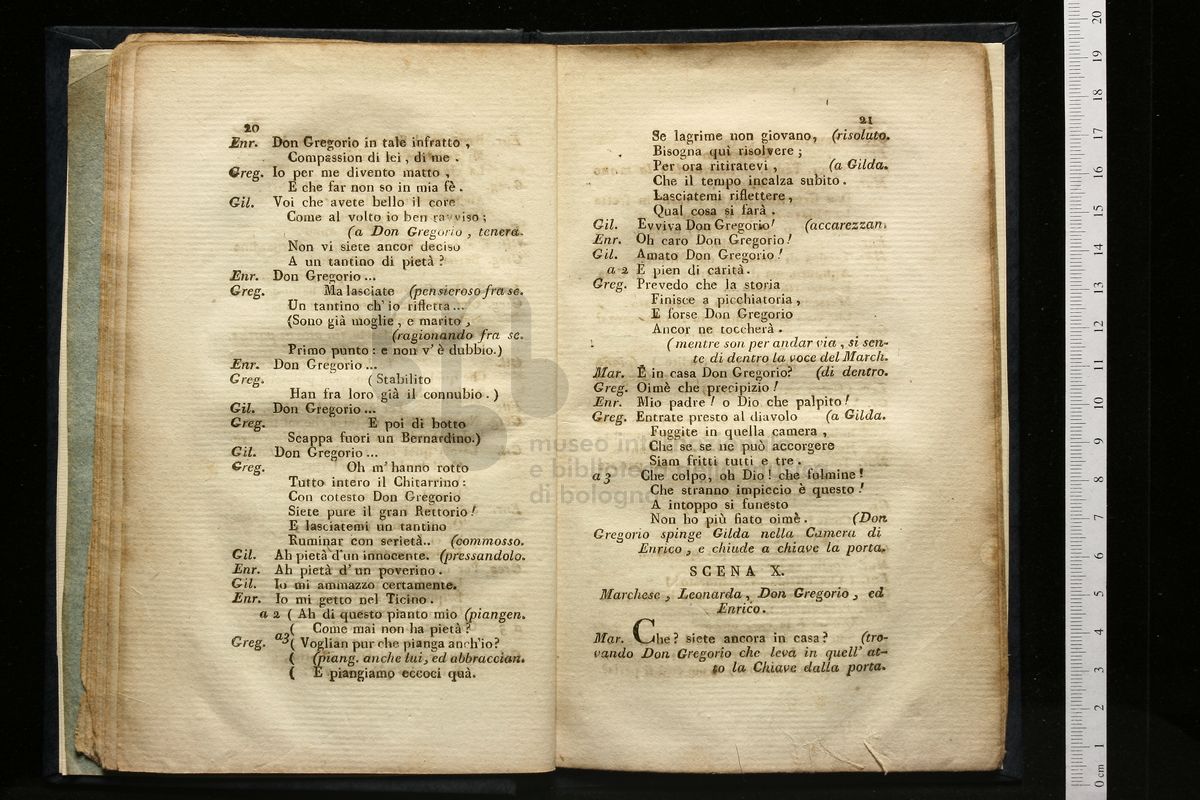 20
Enr. Don Gregorio in tale infratto ,
Compassion di lei , di me .
Greg. Io per me divento matto ,
E che far non so in mia fè .
Gil. Voi che avete bello il core
Come al volto io ben ravviso ;
(a Don Gregorio , tenera.
Non vi siete ancor deciso
A un tantino di pietà ?
Enr. Don Gregorio ...
Greg. Ma lasciate (pensieroso fra se.
Un tantino ch' io rifletta ...
(Sono già moglie , e marito ,
(ragionando fra se.
Primo punto : e non v' è dubbio.)
Enr. Don Gregorio ...
Greg. ( Stabilito
Han fra loro già il connubio . )
Gil. Don Gregorio ...
Greg. E poi di botto
Scappa fuori un Bernardino.)
Gil. Don Gregorio ...
Greg. Oh m' hanno rotto
Tutto intero il Chitarrino :
Con cotesto Don Gregorio
Siete pure il gran Rettorio !
E lasciatemi un tantino
Ruminar con serietà.. (commosso.
Gil. Ah pietà d'un innocente. (pressandolo.
Enr. Ah pietà d' un poverino .
Gil. Io mi ammazzo certamente.
Enr. Io mi getto nel Ticino .
a 2 ( Ah di questo pianto mio (piangen.
( Come mai non ha pietà ?
Greg. a3 ( Voglian pur che pianga anch'io?
( (piang. anche lui, ed abbraccian.
( E piangiamo eccoci quà.
21
Se lagrime non giovano, (risoluto.
Bisogna qui risolvere ;
Per ora ritiratevi , (a Gilda.
Che il tempo incalza subito .
Lasciatemi riflettere ,
Qual cosa si farà .
Gil. Evviva Don Gregorio ! (accarezzan.
Enr. Oh caro Don Gregorio !
Gil. Amato Don Gregorio !
a 2 E pien di carità .
Greg. Prevedo che la storia
Finisce a picchiatoria ,
E forse Don Gregorio
Ancor ne toccherà .
( mentre son per andar via , si sen-
te di dentro la voce del March.
Mar. È in casa Don Gregorio? (di dentro.
Greg. Oimè che precipizio !
Enr. Mio padre ! o Dio che palpito !
Greg. Entrate presto al diavolo (a Gilda.
Fuggite in quella camera ,
Che se se ne può accorgere
Siam fritti tutti e tre .
a 3 Che colpo, oh Dio ! che fulmine !
Che stranno impiccio è questo !
A intoppo si funesto
Non ho più fiato oimè . (Don
Gregorio spinge Gilda nella Camera di
Enrico , e chiude a chiave la porta.
SCENA X.
Marchese , Leonarda , Don Gregorio , ed
Enrico .
Mar. Che ? siete ancora in casa ? (tro-
vando Don Gregorio che leva in quell' at-
to la Chiave dalla porta.
museo
e biblioteca
di bologna
20
19
18
17
16
15
14
13
12
11
10
9
8
7
6
5
4
3
2
1
0 cm